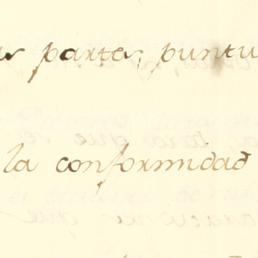 partes, puntu
la conformidad